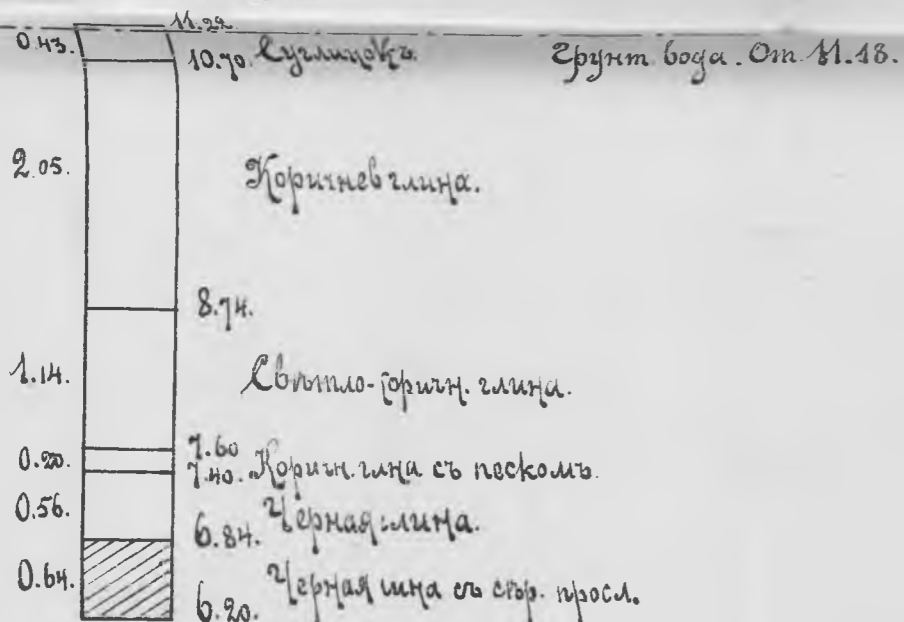 11.22
0.43. 10.70 Суглинокъ. Грунт. вода. От. 11.18.
2.05. Коричнев глина.
8.74.
1.14. Свѣтло-коричн. глина.
7.60
0.20. 7.40. Коричн. глина съ пескомъ.
0.56. Чёрная глина.
6.84.
0.64. Черная глина съ сѣр. просл.
6.20.